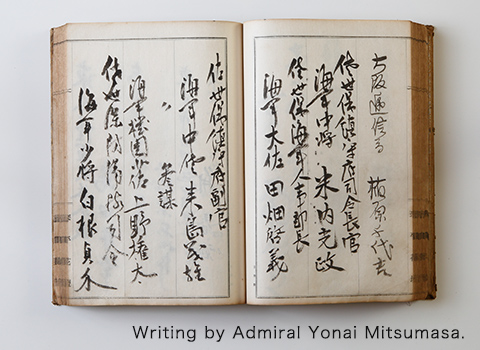 大阪遞信局 千代吉
佐世保鎮守府司令長官
海軍中将 米内光政
佐世保海軍人事部長
海軍大佐 田畑啓義
佐世保鎮守府副官
海軍中佐 来島茂雄
〃 参謀
海軍機関少佐 上野権太
佐世保防備隊司令
海軍少将 白根貞介
Writing by Admiral Yonai Mitsumasa.